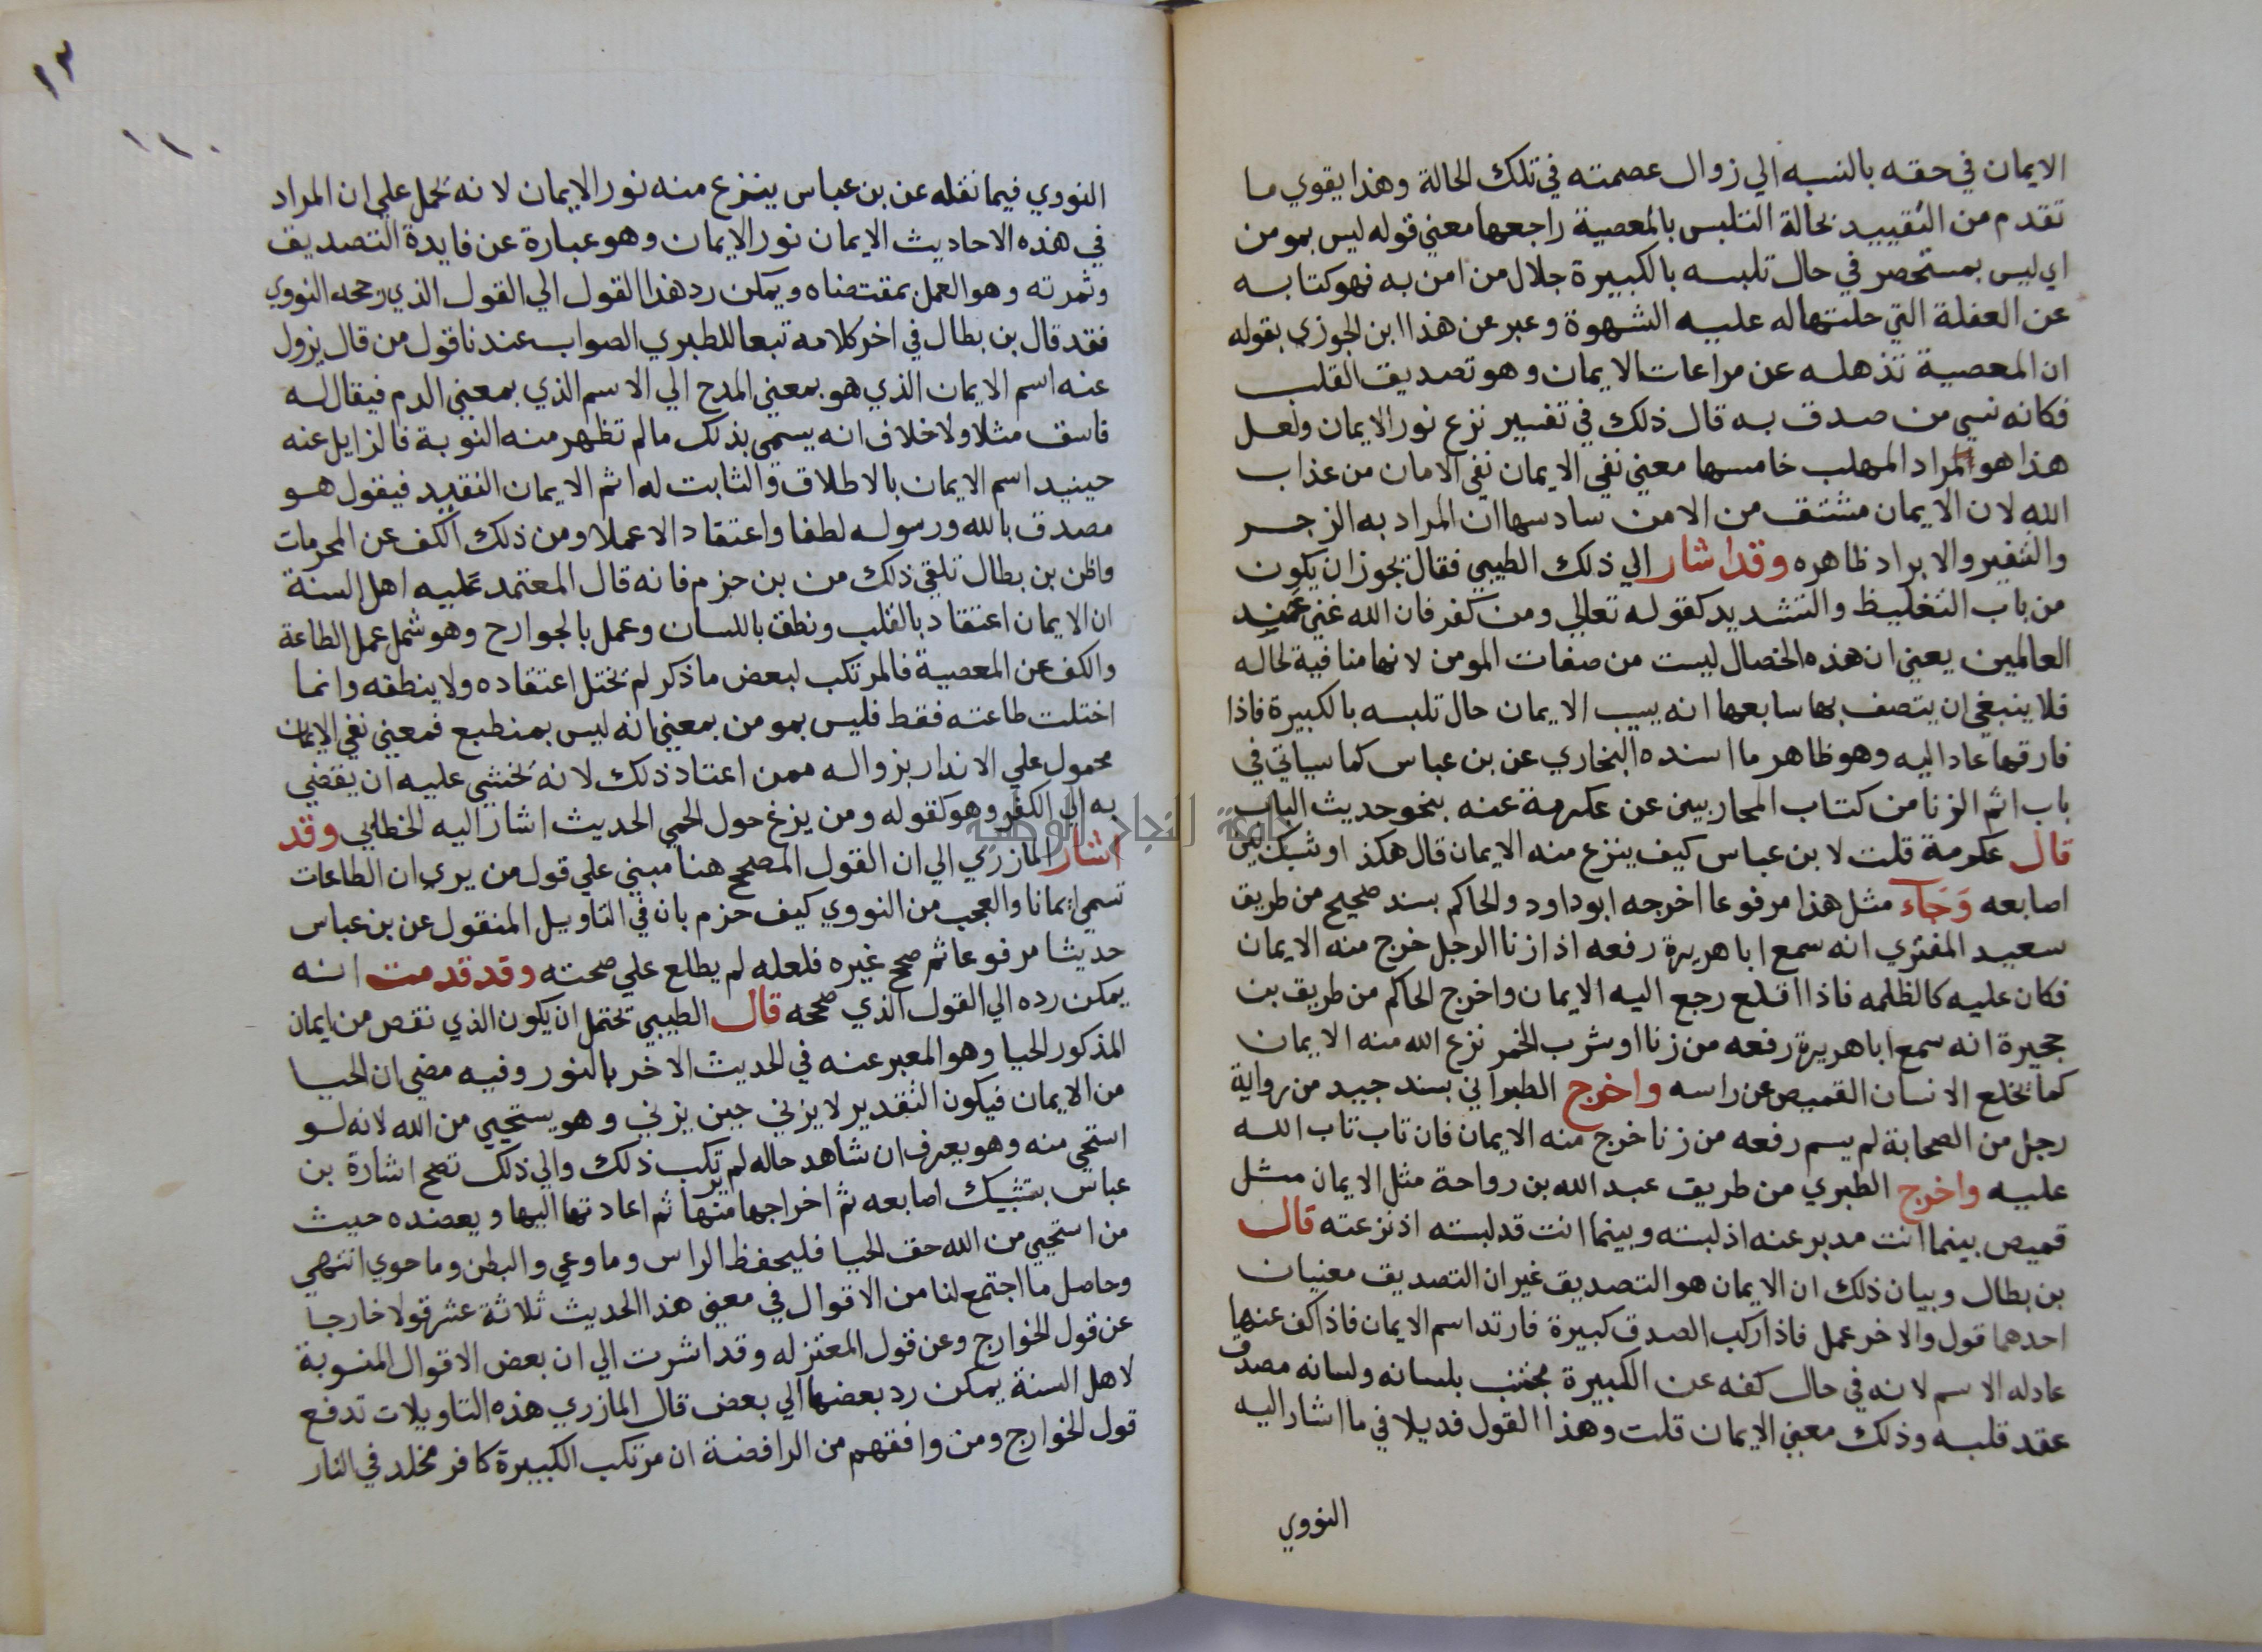 الايمان في حقه بالنسبه الي زوال عصمته في تلك الحالة وهذا يقوي ما
تقدم من التقييد بحالة التلبس بالمعصية راجعها معني قوله ليس بمومن
اي ليس بمستحضر في حال تلبسه بالكبيرة جلال من امن به فهو كنا به
عن الغفلة التي جلتها له عليه الشهوة وعبر عن هذا ابن الجوزي بقوله
ان المعصية تذهله عن مراعات الايمان وهو تصديق القلب
فكانه نسي من صدق به قال ذلك في تفسير نزع نور الايمان ولعل
هذا هو المراد المهلب خامسها معني نفي الايمان نفي الامان من عذاب
الله لان الايمان مشتق من الامن سادسها ان المراد به الزجر
والتنفير والا براد ظاهره وقد اشار الي ذلك الطيبي فقال تجوز ان يكون
من باب التغليظ والتشديد كقوله تعالي ومن كفر فان الله غني عن
العالمين يعني ان هذه الخصال ليست من صفات المومن لانها منافية لحاله
فلا ينبغي ان يتصف بها سابعها انه يسب الايمان حال تلبسه بالكبيرة فاذا
فارقها عاد اليه وهو ظاهر ما اسنده البخاري عن بن عباس كما سياتي في
باب اثم الزنا من كتاب المحاربين عن عكرمة عنه بنحو حديث الباب
قال عكرمة قلت لا بن عباس كيف ينزع منه الايمان قال هكذ اوشبك بين
اصابعه وجاء مثل هذا مرفوعا اخرجه ابو داود والحاكم بسند صحيح من طريق
سعيد المقتري انه سمع ابا هريرة رفعه اذا زنا الرجل خرج منه الايمان
فكان عليه كالظلمه فاذا اقلع رجع اليه الايمان واخرج الحاكم من طريق بن
حجيرة انه سمع ابا هريرة رفعه من زنا او شرب الخمر نزع الله منه الايمان
كما تخلع الانسان القميص عن راسه واخرج الطبراني بسند جيد من رواية
رجل من الصحابة لم يسم رفعه من زنا خرج منه الايمان فان تاب تاب الله
عليه واخرج الطبري من طريق عبد الله بن رواحة مثل الايمان مثل
قميص بينما انت مدبر عنه اذ لبسته وبينما انت قد لبسته اذ نزعته قال
بن بطال وبيان ذلك ان الايمان هو التصديق غير ان التصديق معنيان
احدهما قول والاخر عمل فاذا ركب الصدق كبيرة فارتد اسم الايمان فاذا كف عنها
عاد له الاسم لانه في حال كفه عن الكبيرة مجتنب بلسانه ولسانه مصدق
عقد قلبه وذلك معني الايمان قلت وهذا القول قد يلاقي ما اشار اليه
النووي
١٣
١١٠
النووي فيما نقله عن بن عباس ينزع منه نور الايمان لانه يحمل علي ان المراد
في هذه الاحاديث الايمان نور الايمان وهو عبارة عن فايدة التصديق
وثمرته وهو العمل بمقتضاه ويمكن رد هذا القول الي القول الذي رجحه النووي
فقد قال بن بطال في اخر كلامه تبعا للطبري الصواب عندنا قول من قال يزول
عنه اسم الايمان الذي هو بمعني المدح الي الاسم الذي بمعني الدم فيقال له
فاسق مثلا ولا خلاف انه يسمي بذلك ما لم تظهر منه التوبة فالزايل عنه
حينيد اسم الايمان بالاطلاق والثابت له اثم الايمان التقيد فيقول هو
مصدق بالله ورسوله لطفا واعتقاد الا عملا ومن ذلك الكف عن المحرمات
واظن بن بطال تلقي ذلك من بن حزم فانه قال المعتمد عليه اهل السنة
ان الايمان اعتقاد بالقلب ونطق باللسان وعمل بالجوارح وهو شمل عمل الطاعة
والكف عن المعصية فالمرتكب لبعض ما ذكر لم تختل اعتقاده ولا ينطقه وانما
اختلت طاعته فقط فليس بمومن بمعني انه ليس بمنطبع فمعني نفي الايمان
محمول علي الاندار بزواله ممن اعتاد ذلك لانه يخشي عليه ان يقضي
به الي الكفر وهو كقوله ومن يزغ حول الحمي الحديث اشار اليه الخطابي وقد
اشار المازري الي ان القول المصحح هنا مبني علي قول من يري ان الطاعات
تسمي ايمانا والعجب من النووي كيف حزم بان في التاويل المنقول عن بن عباس
حديثا مرفوعا ثم صحح غيره فلعله لم يطلع علي صحته وقد قدمت انه
يمكن رده الي القول الذي صححه قال الطيبي تحتمل ان يكون الذي نقص من ايمان
المذكور الحيا وهو المعبر عنه في الحديث الاخر بالنور وفيه مضي ان الحيا
من الايمان فيكون التقدير لا يزني حين يزني وهو يستحيي من الله لانه لو
استحي منه وهو يعرف ان شاهد حاله لم يرتكب ذلك والي ذلك تصح اشارة بن
عباس بتشبيك اصابعه ثم اخراجها منها ثم اعادتها اليها ويعضده حيث
من استحيي من الله حق الحيا فليحفظ الراس وما وعي والبطن وما حوي انتهي
وحاصل ما اجتمع لنا من الاقوال في معني هذا الحديث ثلاثة عشر قولا خارجا
عن قول الخوارج وعن قول المعتزله وقد اشرت الي ان بعض الاقوال المنسوبة
لاهل السنة يمكن رد بعضها الي بعض قال المازري هذه التاويلات تدفع
قول الخوارج ومن وافقهم من الرافضة ان مرتكب الكبيرة كافر مخلد في النار
جامعة النجاح الوطنية